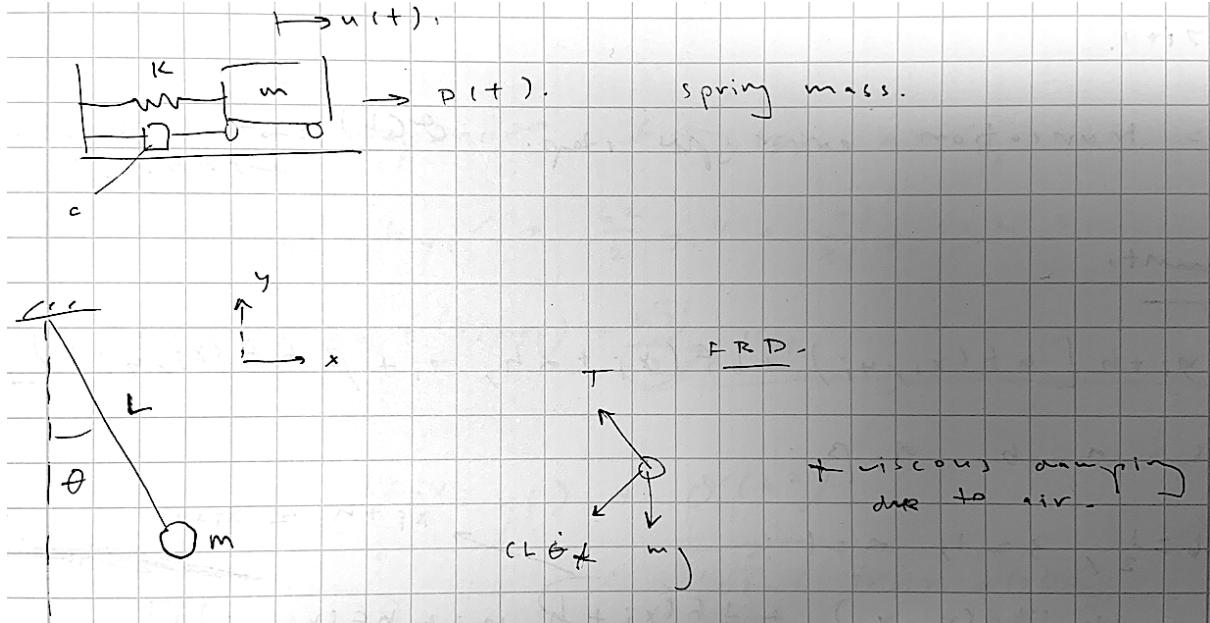 u(t).
K
m
p(t).
spring mass.
c
y
x
L
θ
m
FBD.
T
+ viscous damping
due to air.
mg